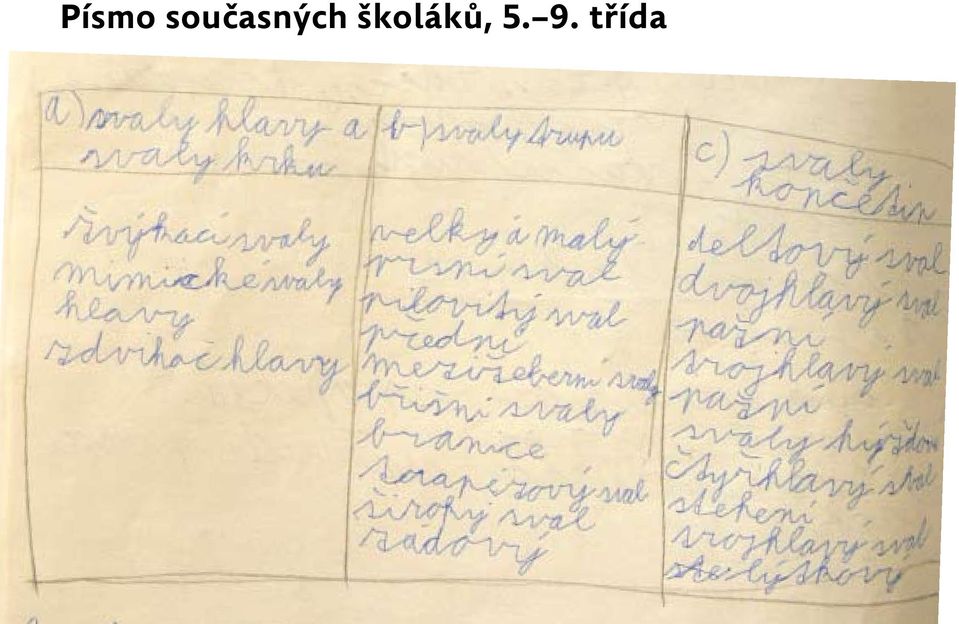 Písmo současných školáků, 5.–9. třída
a) svaly hlavy a
svaly krku
žvýkací svaly
mimické svaly
hlavy
zdvihač hlavy
b) svaly trupu
velký á malý
prsní sval
pilovitý sval
přední
mezižeberní svaly
břišní svaly
branice
trapézový sval
široký sval
zádový
c) svaly
končetin
deltový sval
dvojhlavý sval
pažní
trojhlavý sval
pažní
svaly hýžďové
čtyřhlavý sval
stehení
trojhlavý sval
lýtkový